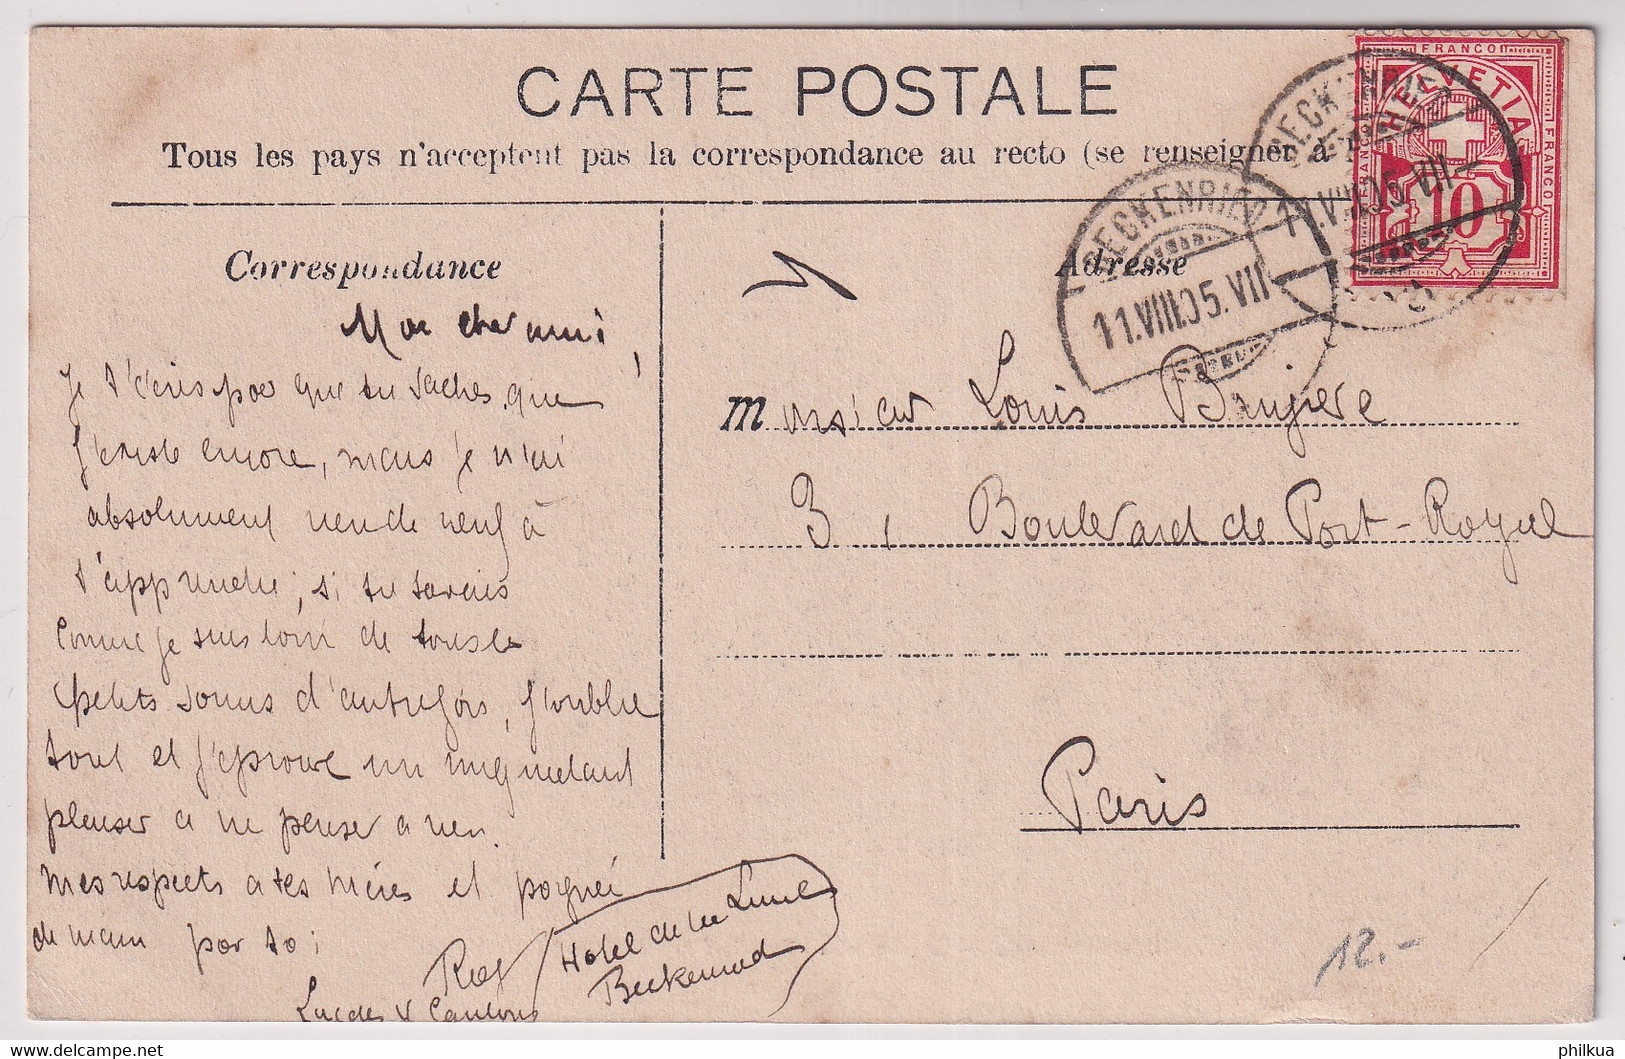 CARTE POSTALE
Tous les pays n'acceptent pas la correspondance au recto (se renseigner à
Correspondance
Adresse
FRANCO
HELVETIA
FRANCO
FRANCO
10
BECKENRIED
11.VIII.05.VII
BECKENRIED
11.VIII.05.VII
Mon cher ami,
Je t'écris pour que tu saches que
j'existe encore, mais je n'ai
absolument rien de neuf à
t'apprendre; si tu savais
comme je suis loin de tous les
petits soucis d'autrefois, j'oublie
tout et j'éprouve un inquiétant
plaisir à ne penser à rien.
Mes respects à tes mères et poignée
de main pour toi
Hôtel de la Lune
Beckenried
Lac des 4 Cantons
Monsieur Louis Brugière
3, Boulevard de Port-Royal
Paris
12.-
philkua